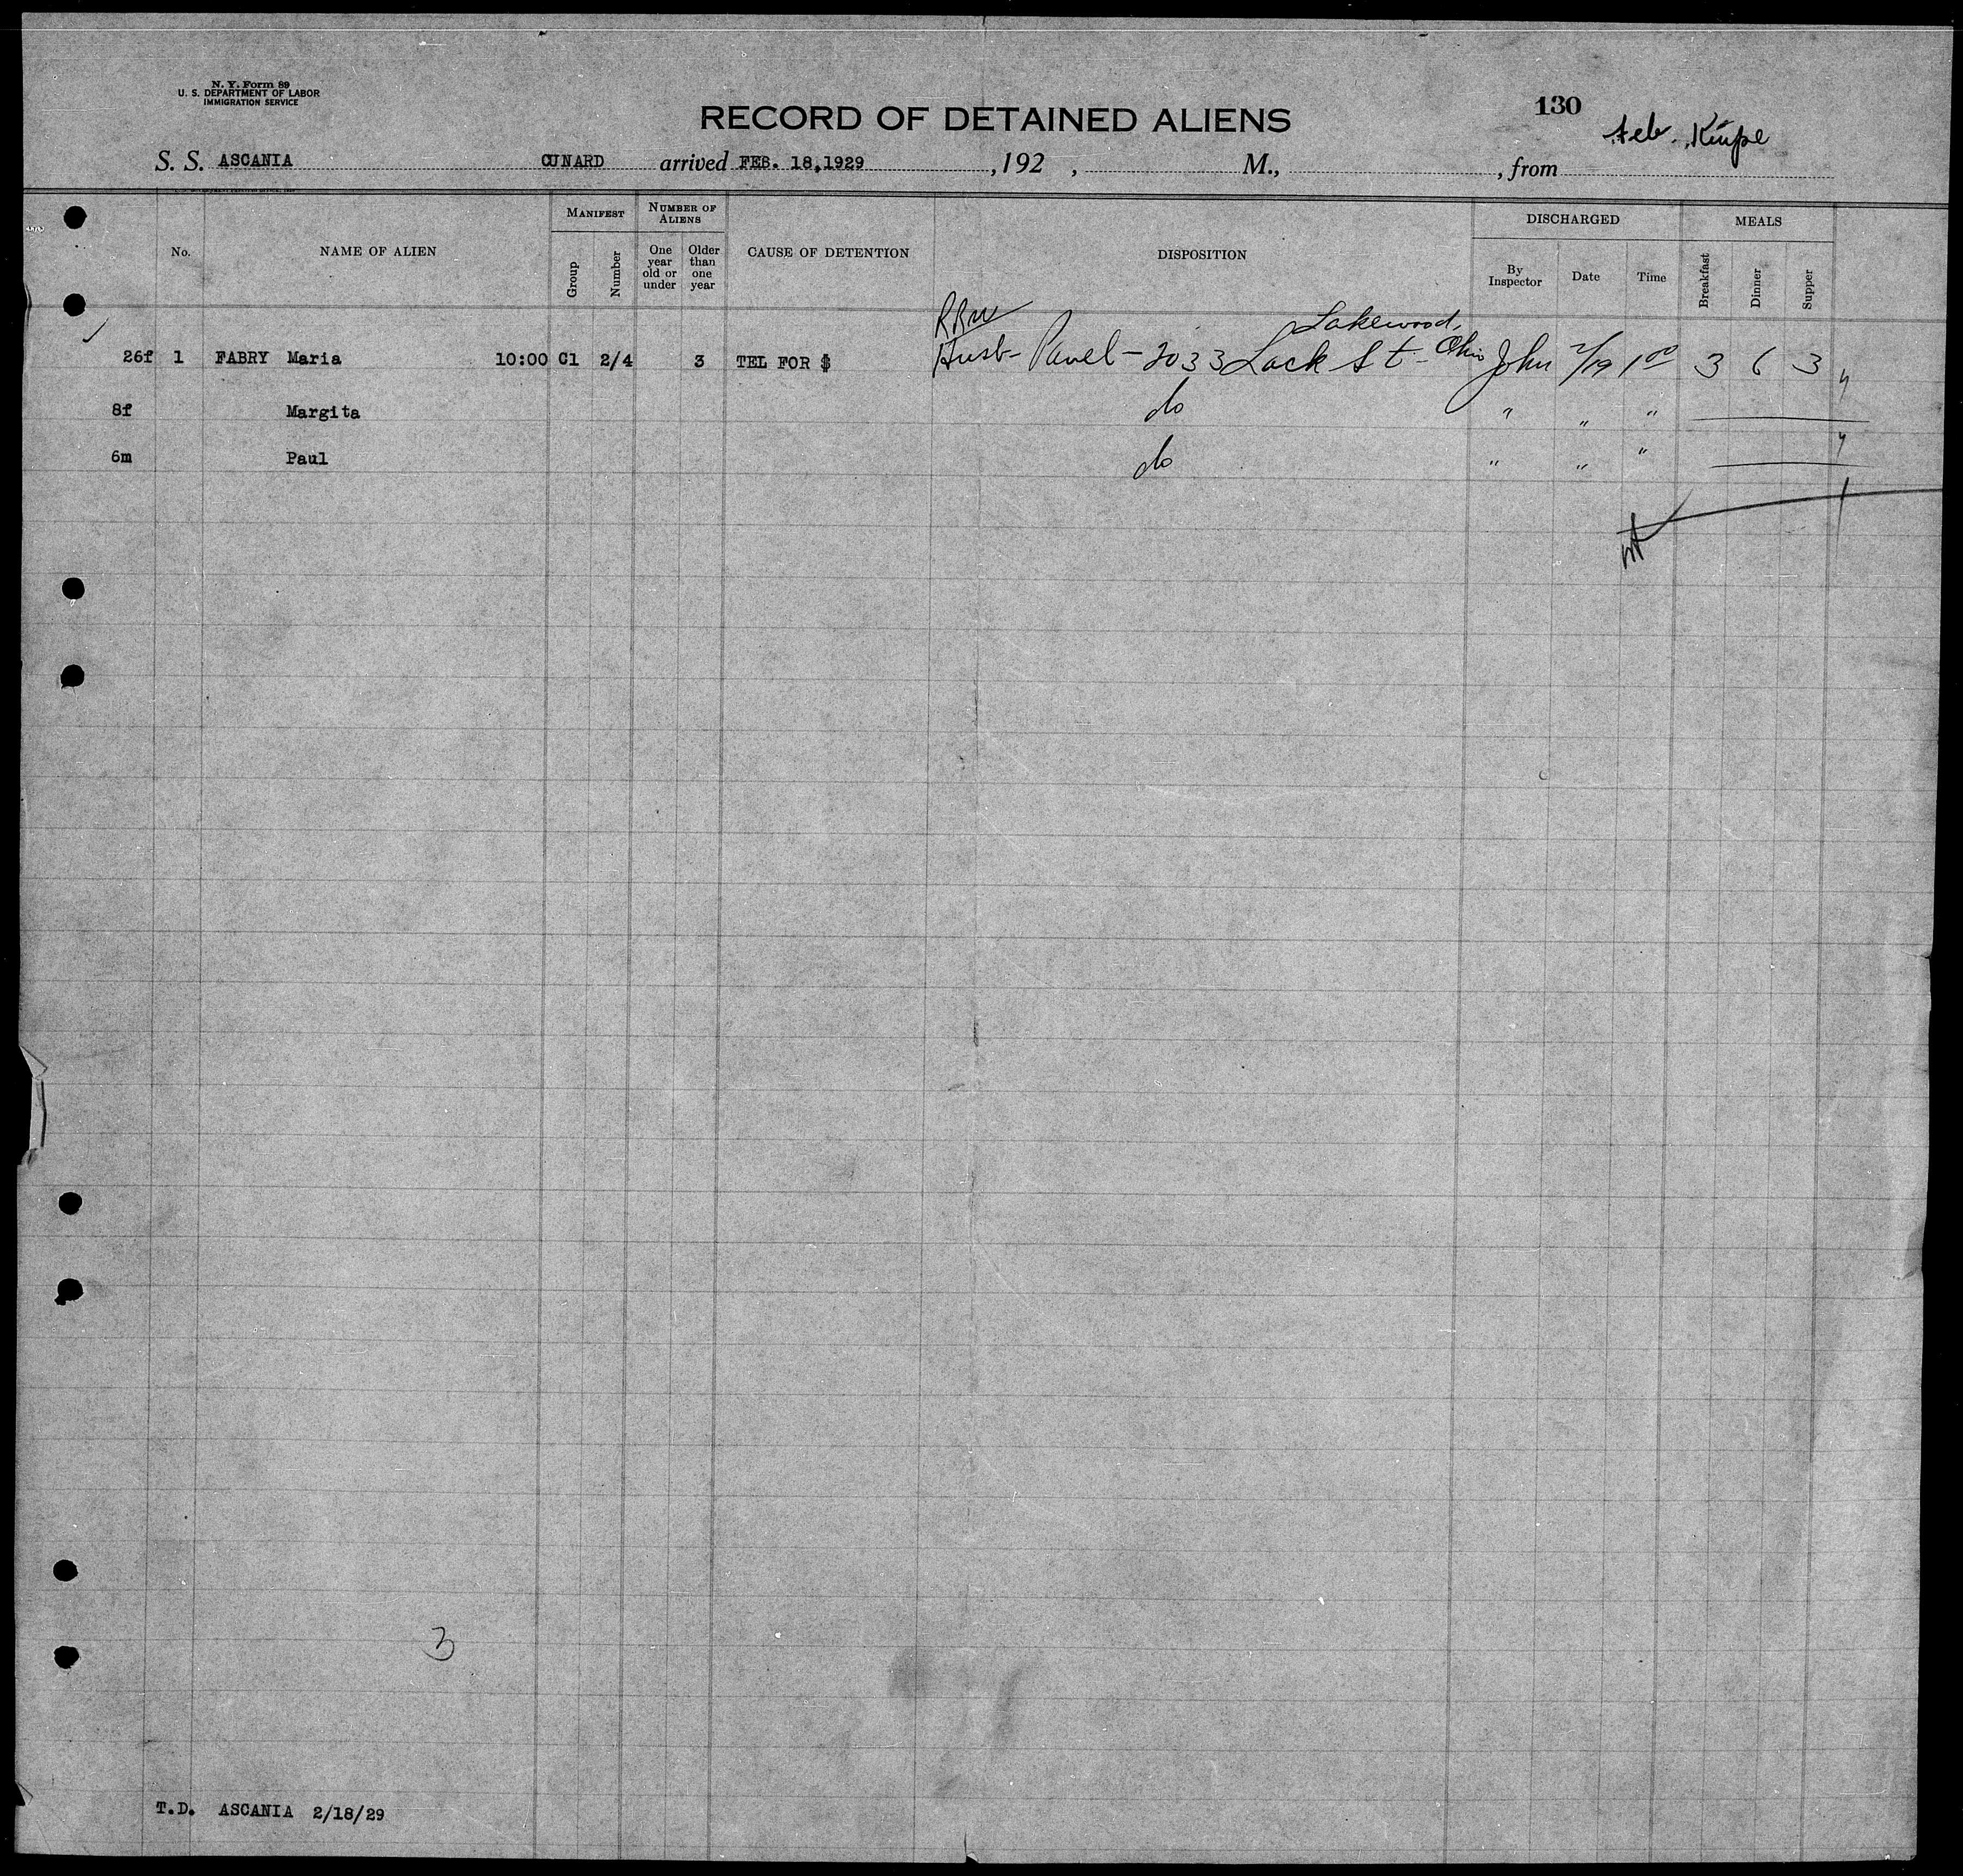 N. Y. Form 89
U. S. DEPARTMENT OF LABOR
IMMIGRATION SERVICE
RECORD OF DETAINED ALIENS
130
Feb.
S. S. ASCANIA CUNARD arrived FEB. 18,1929 , 192 , M., , from
No.
NAME OF ALIEN
MANIFEST
Group
Number
NUMBER OF ALIENS
One year old or under
Older than one year
CAUSE OF DETENTION
DISPOSITION
DISCHARGED
By Inspector
Date
Time
MEALS
Breakfast
Dinner
Supper
Lakewood,
26f 1 FABRY Maria 10:00 C1 2/4 3 TEL FOR $ Husb- Pavel - 2033 Lack St - Ohio John 2/19 1 00 3 6 3
8f Margita do " " "
6m Paul do " " "
3
T.D. ASCANIA 2/18/29